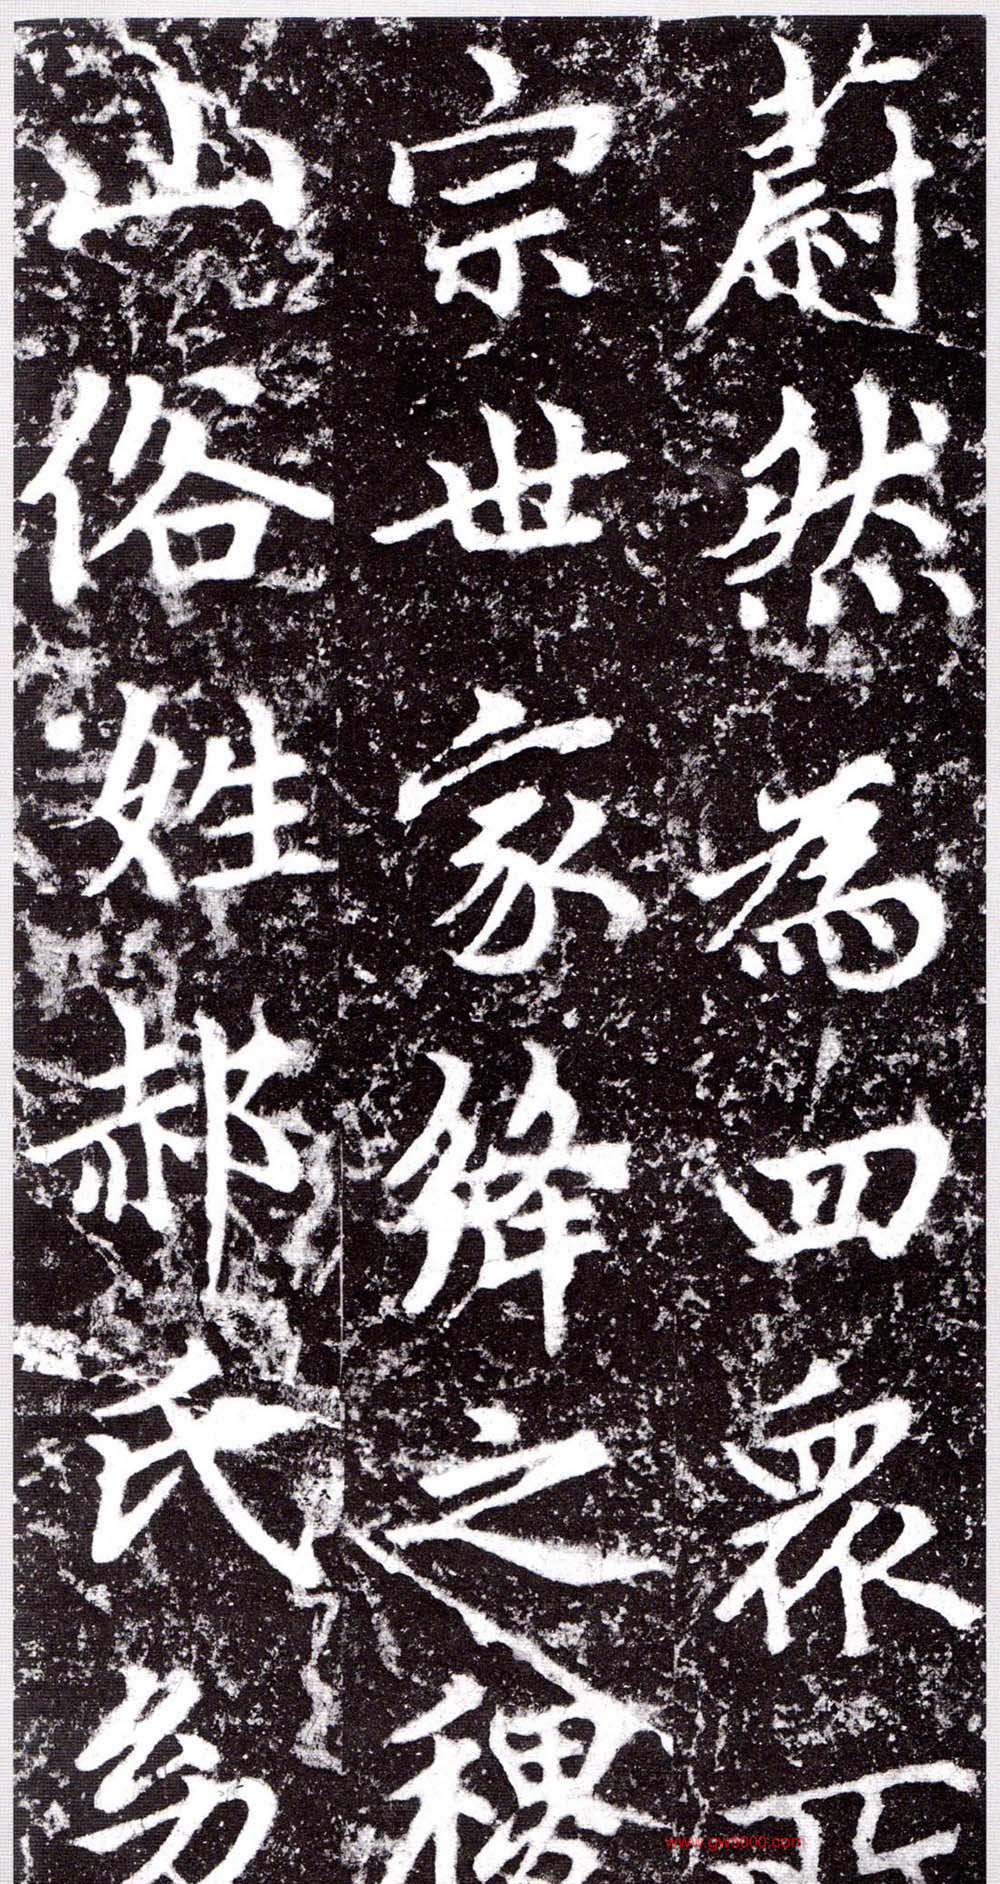 蔚然為四眾所
宗世家絳之稷
山俗姓郝氏幼
www.gw5000.com